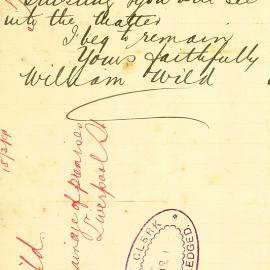 trusting you will see
into the matter
I beg to remain
Yours faithfully
William Wild
15/2/94
ild.
ainage of premises
Liverpool St
CLERK
LEDGED